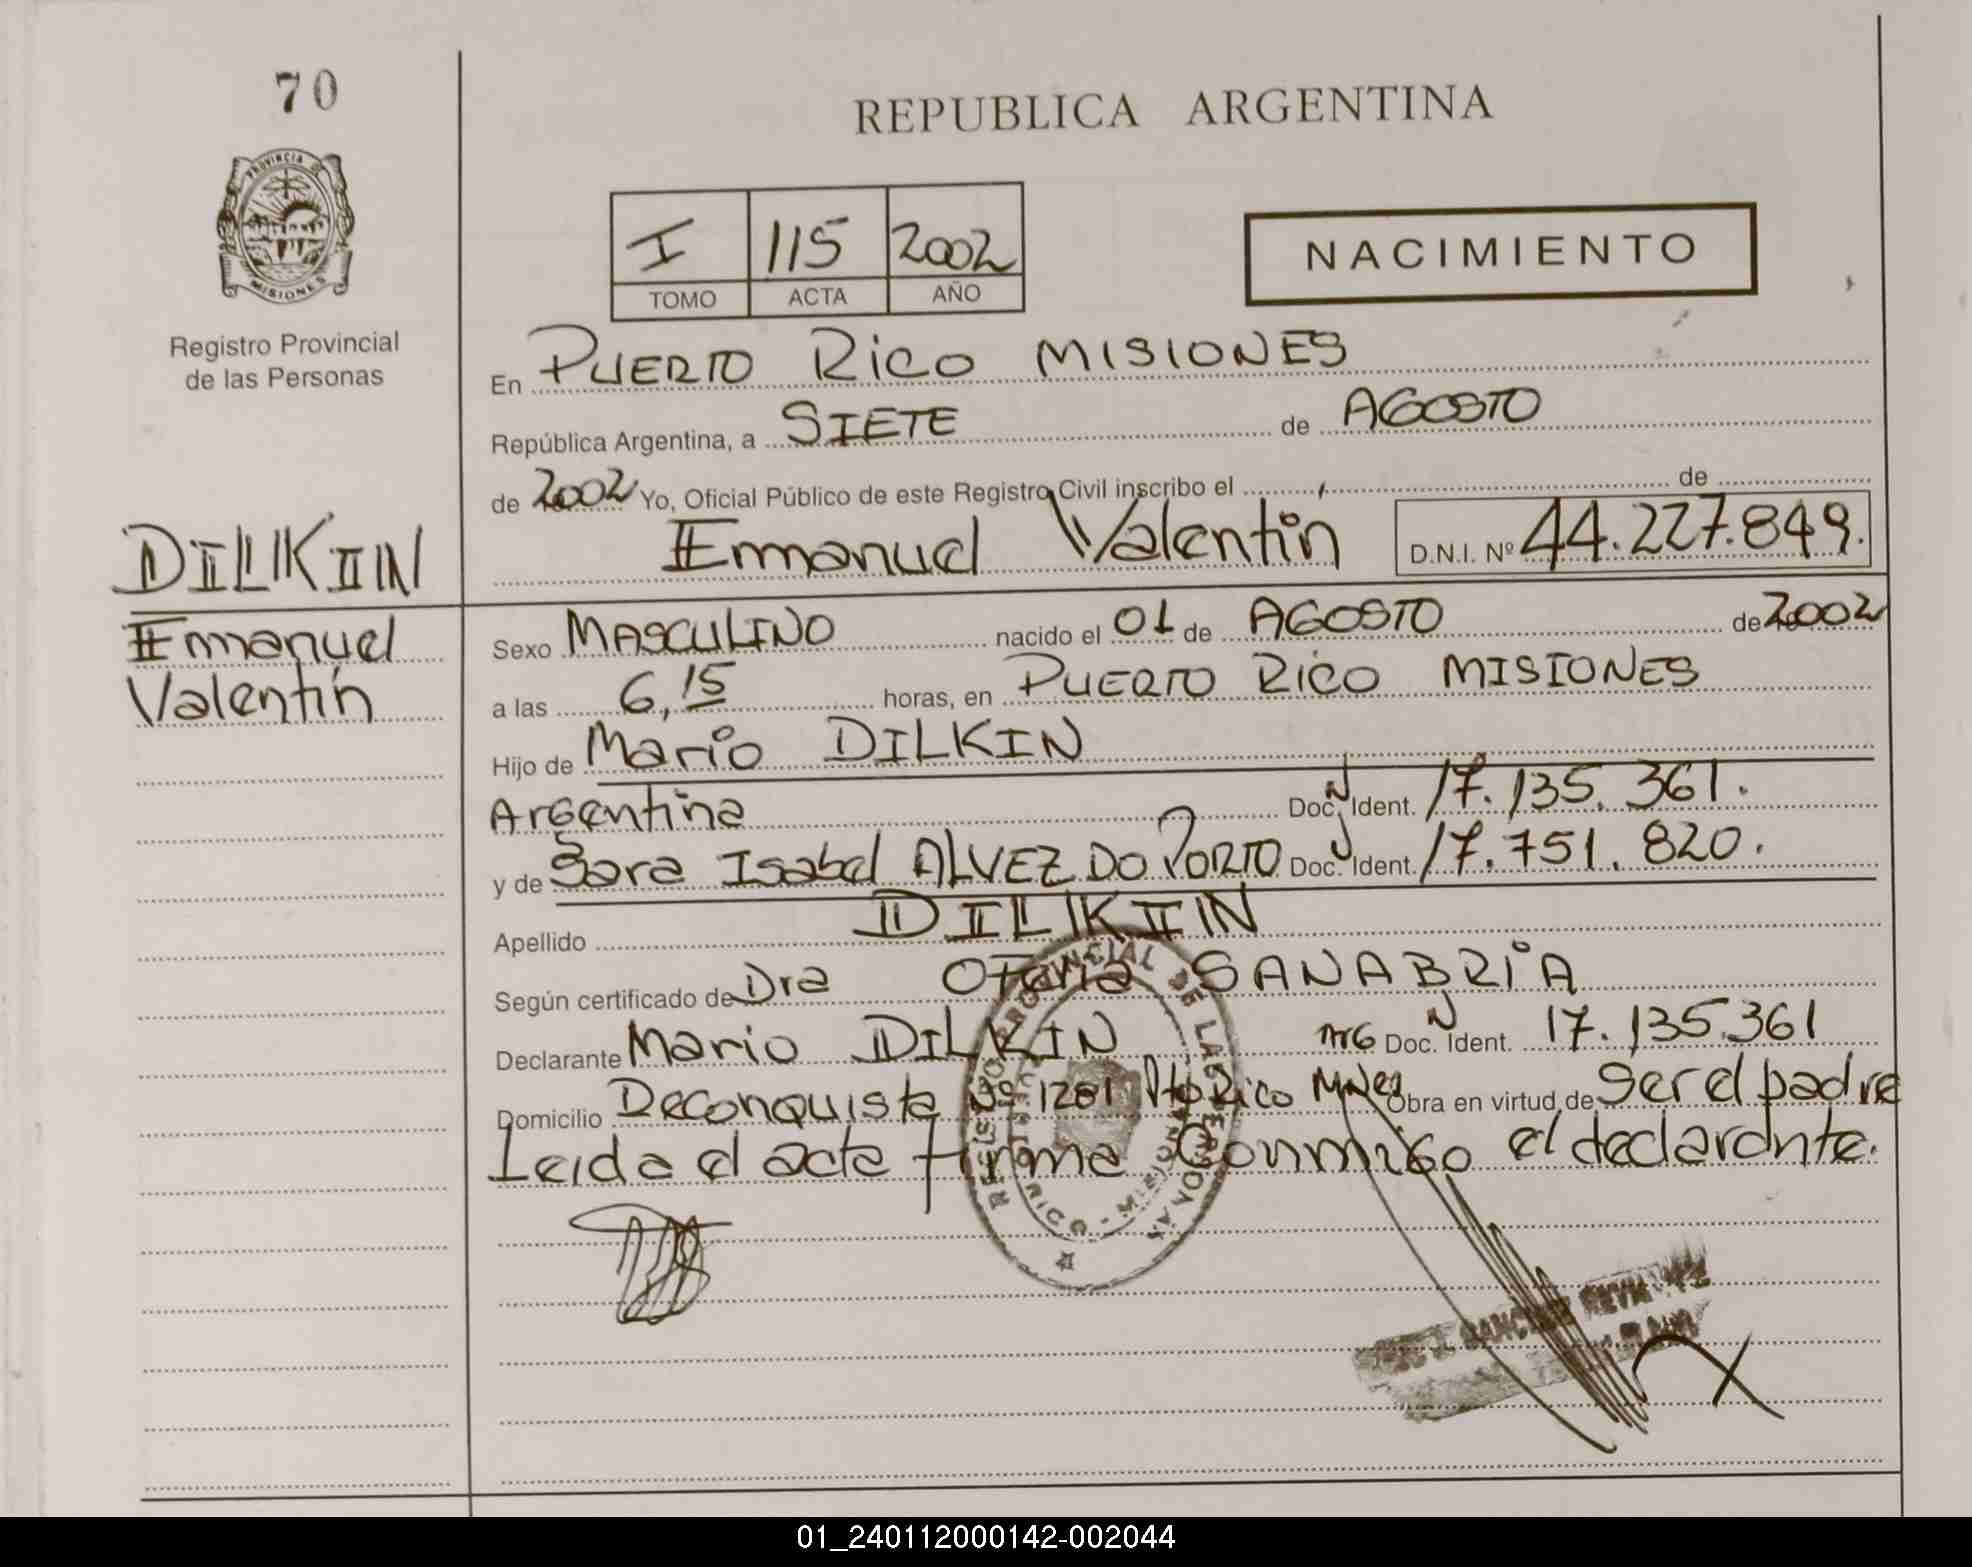 70
REPUBLICA ARGENTINA
PROVINCIA DE
MISIONES
Registro Provincial
de las Personas
I 115 2002
TOMO ACTA AÑO
NACIMIENTO
En PUERTO RICO MISIONES
República Argentina, a SIETE de AGOSTO
de 2002 Yo, Oficial Público de este Registro Civil inscribo el de
Emanuel Valentin D.N.I. Nº 44.227.849.
DILKIN
Emanuel
Valentin
Sexo MASCULINO nacido el 01 de AGOSTO de 2002
a las 6,15 horas, en PUERTO RICO MISIONES
Hijo de Mario DILKIN
Argentina Doc. N Ident. 17.135.361.
y de Sara Isabel ALVEZ DO PORTO Doc. Ident. 17.751.820.
Apellido DILKIN
Según certificado de Dra SANABRIA
Declarante Mario DILKIN ARG Doc. N Ident. 17.135.361
Domicilio Reconquista Nº 1281 Pto Rico Mnes Obra en virtud de Ser el padre
Leida el acta firma Conmigo el declarante.
REGISTRO PROVINCIAL DE LAS PERSONAS
RICO - MISIONES
01_240112000142-002044